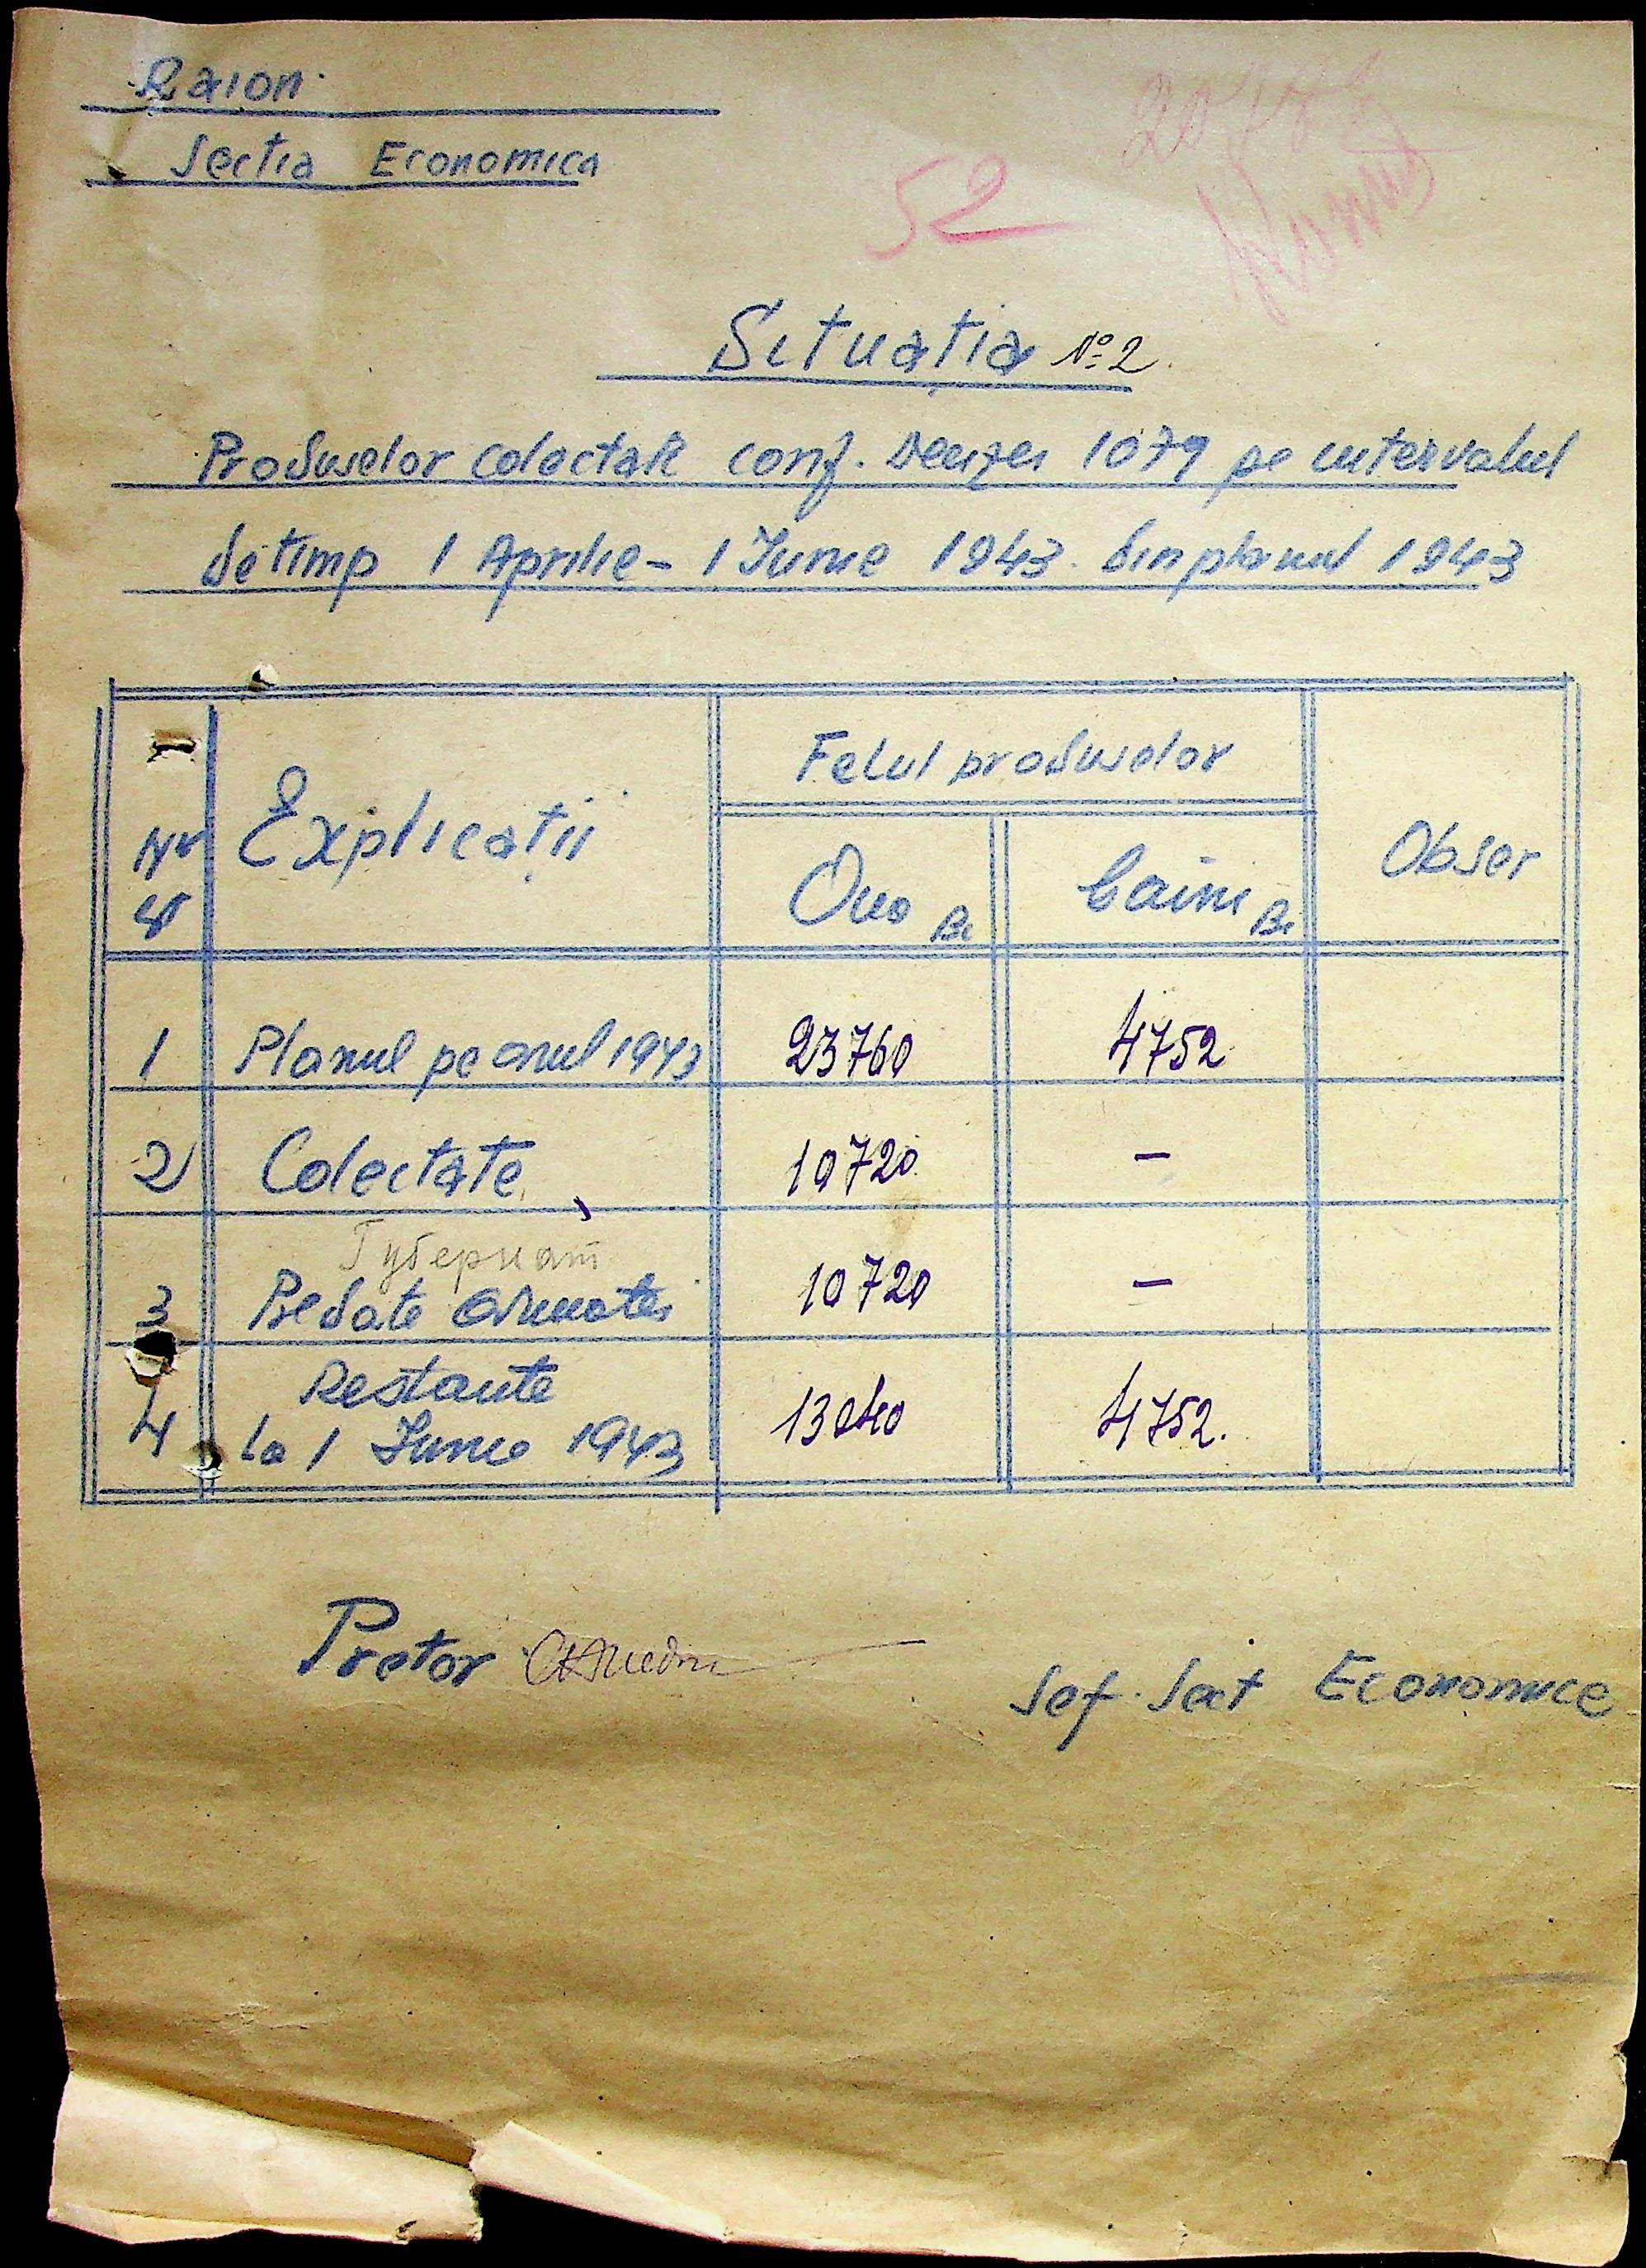 Raion
Sectia Economica
52
Situatia № 2
Produselor colectate conf. Deciziei 1079 pe intervalul
de timp 1 Aprilie - 1 Iunie 1943 din planul 1943
Nr
Explicații
Felul produselor
Obser
Oua Bc
Gaini Bc
1 Planul pe anul 1943 23760 4752
2 Colectate 10720 —
Губернат
3 Predate Armatei 10720 —
Restante
4 La 1 Iunie 1943 13040 4752.
Pretor
Sef. Sect Economice